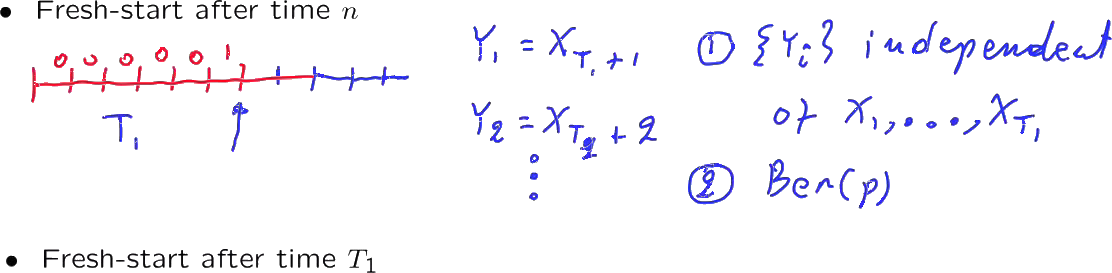 • Fresh-start after time n
0 0 0 0 0 1
T₁
Y₁ = X_{T₁+1}
Y₂ = X_{T₂+2}
⋮
① {Yᵢ} independent
of X₁,...,X_{T₁}
② Ber(p)
• Fresh-start after time T₁